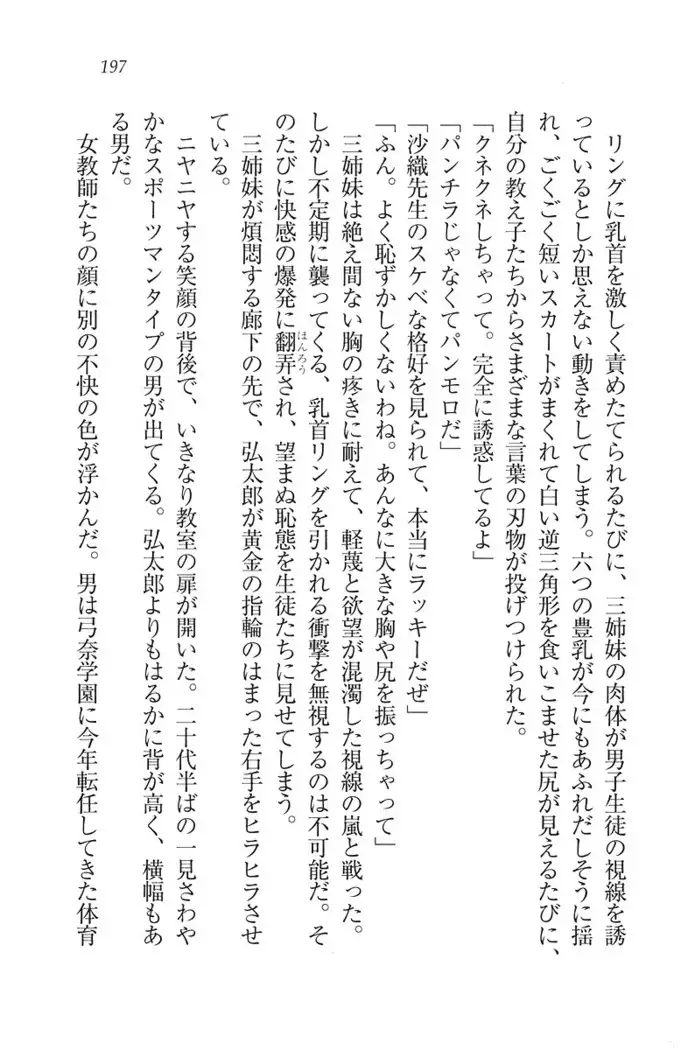 197
リングに乳首を激しく責めたてられるたびに、三姉妹の肉体が男子生徒の視線を誘
っているとしか思えない動きをしてしまう。六つの豊乳が今にもあふれだしそうに揺
れ、ごくごく短いスカートがまくれて白い逆三角形を食いこませた尻が見えるたびに、
自分の教え子たちからさまざまな言葉の刃物が投げつけられた。
「クネクネしちゃって。完全に誘惑してるよ」
「パンチラじゃなくてパンモロだ」
「沙織先生のスケベな格好を見られて、本当にラッキーだぜ」
「ふん。よく恥ずかしくないわね。あんなに大きな胸や尻を振っちゃって」
三姉妹は絶え間ない胸の疼きに耐えて、軽蔑と欲望が混濁した視線の嵐と戦った。
しかし不定期に襲ってくる、乳首リングを引かれる衝撃を無視するのは不可能だ。そ
のたびに快感の爆発に翻弄され、望まぬ恥態を生徒たちに見せてしまう。
ほんろう
三姉妹が煩悶する廊下の先で、弘太郎が黄金の指輪のはまった右手をヒラヒラさせ
ている。
ニヤニヤする笑顔の背後で、いきなり教室の扉が開いた。二十代半ばの一見さわや
かなスポーツマンタイプの男が出てくる。弘太郎よりもはるかに背が高く、横幅もあ
る男だ。
女教師たちの顔に別の不快の色が浮かんだ。男は弓奈学園に今年転任してきた体育